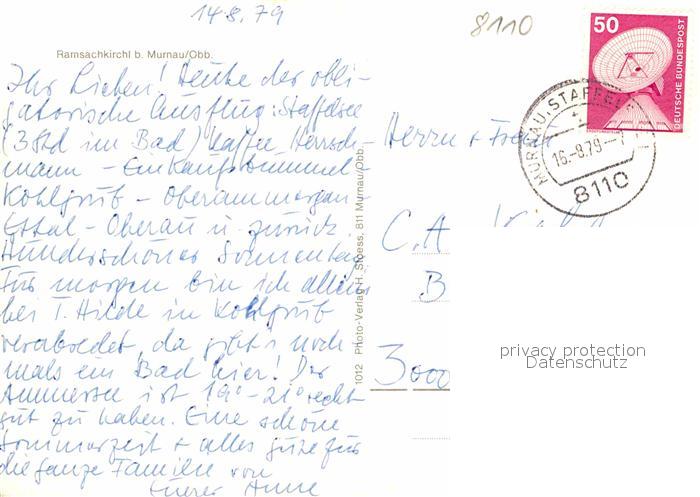 14.8.79
8110
50
DEUTSCHE BUNDESPOST
MURNAU, STAFFEL
16.-8.79-
8110
Ramsachkirchl b. Murnau/Obb.
Ihr Lieben! Heute der obli-
gatorische Ausflug: Staffelsee
(3 Std im Bad) Kaffee Herrsch-
mann - Einkaufsbummel -
Kohlgrub - Oberammergau -
Ettal - Oberau u. zurück.
Wunderschöner Sonnentag.
Für morgen bin ich alleine
bei T. Hilde in Kohlgrub
verabredet, da gibt's noch
mals ein Bad hier! Der
Ammersee ist 19°-21° recht
gut zu haben. Eine schöne
Sommerzeit + alles gute für
die ganze Familien von
Eurer Anne
1012 Photo-Verlag H. Stoess, 811 Murnau/Obb.
Herrn + Frau
C. A
B
3000
privacy protection
Datenschutz